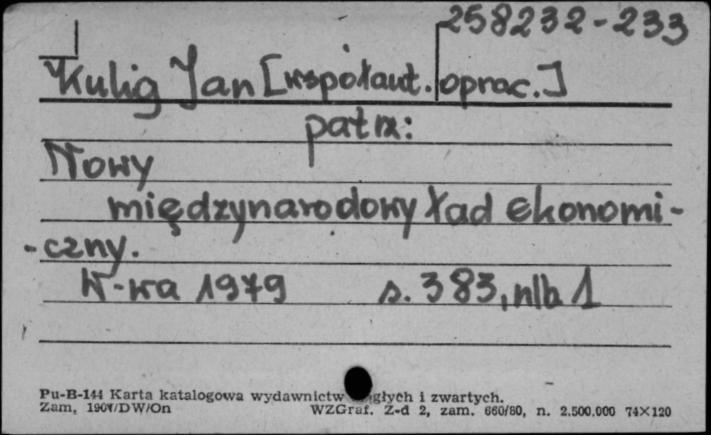 258232-233
Kulig Jan [współaut. oprac.]
patrz:
Nowy
międzynarodowy ład ekonomi-
-czny.
W-wa 1979 s. 383, nlb 1
Pu-B-144 Karta katalogowa wydawnictw głych i zwartych.
Zam, /DW/On WZGraf. Z-d 2, zam. 660/80, n. 2.500.000 74×120